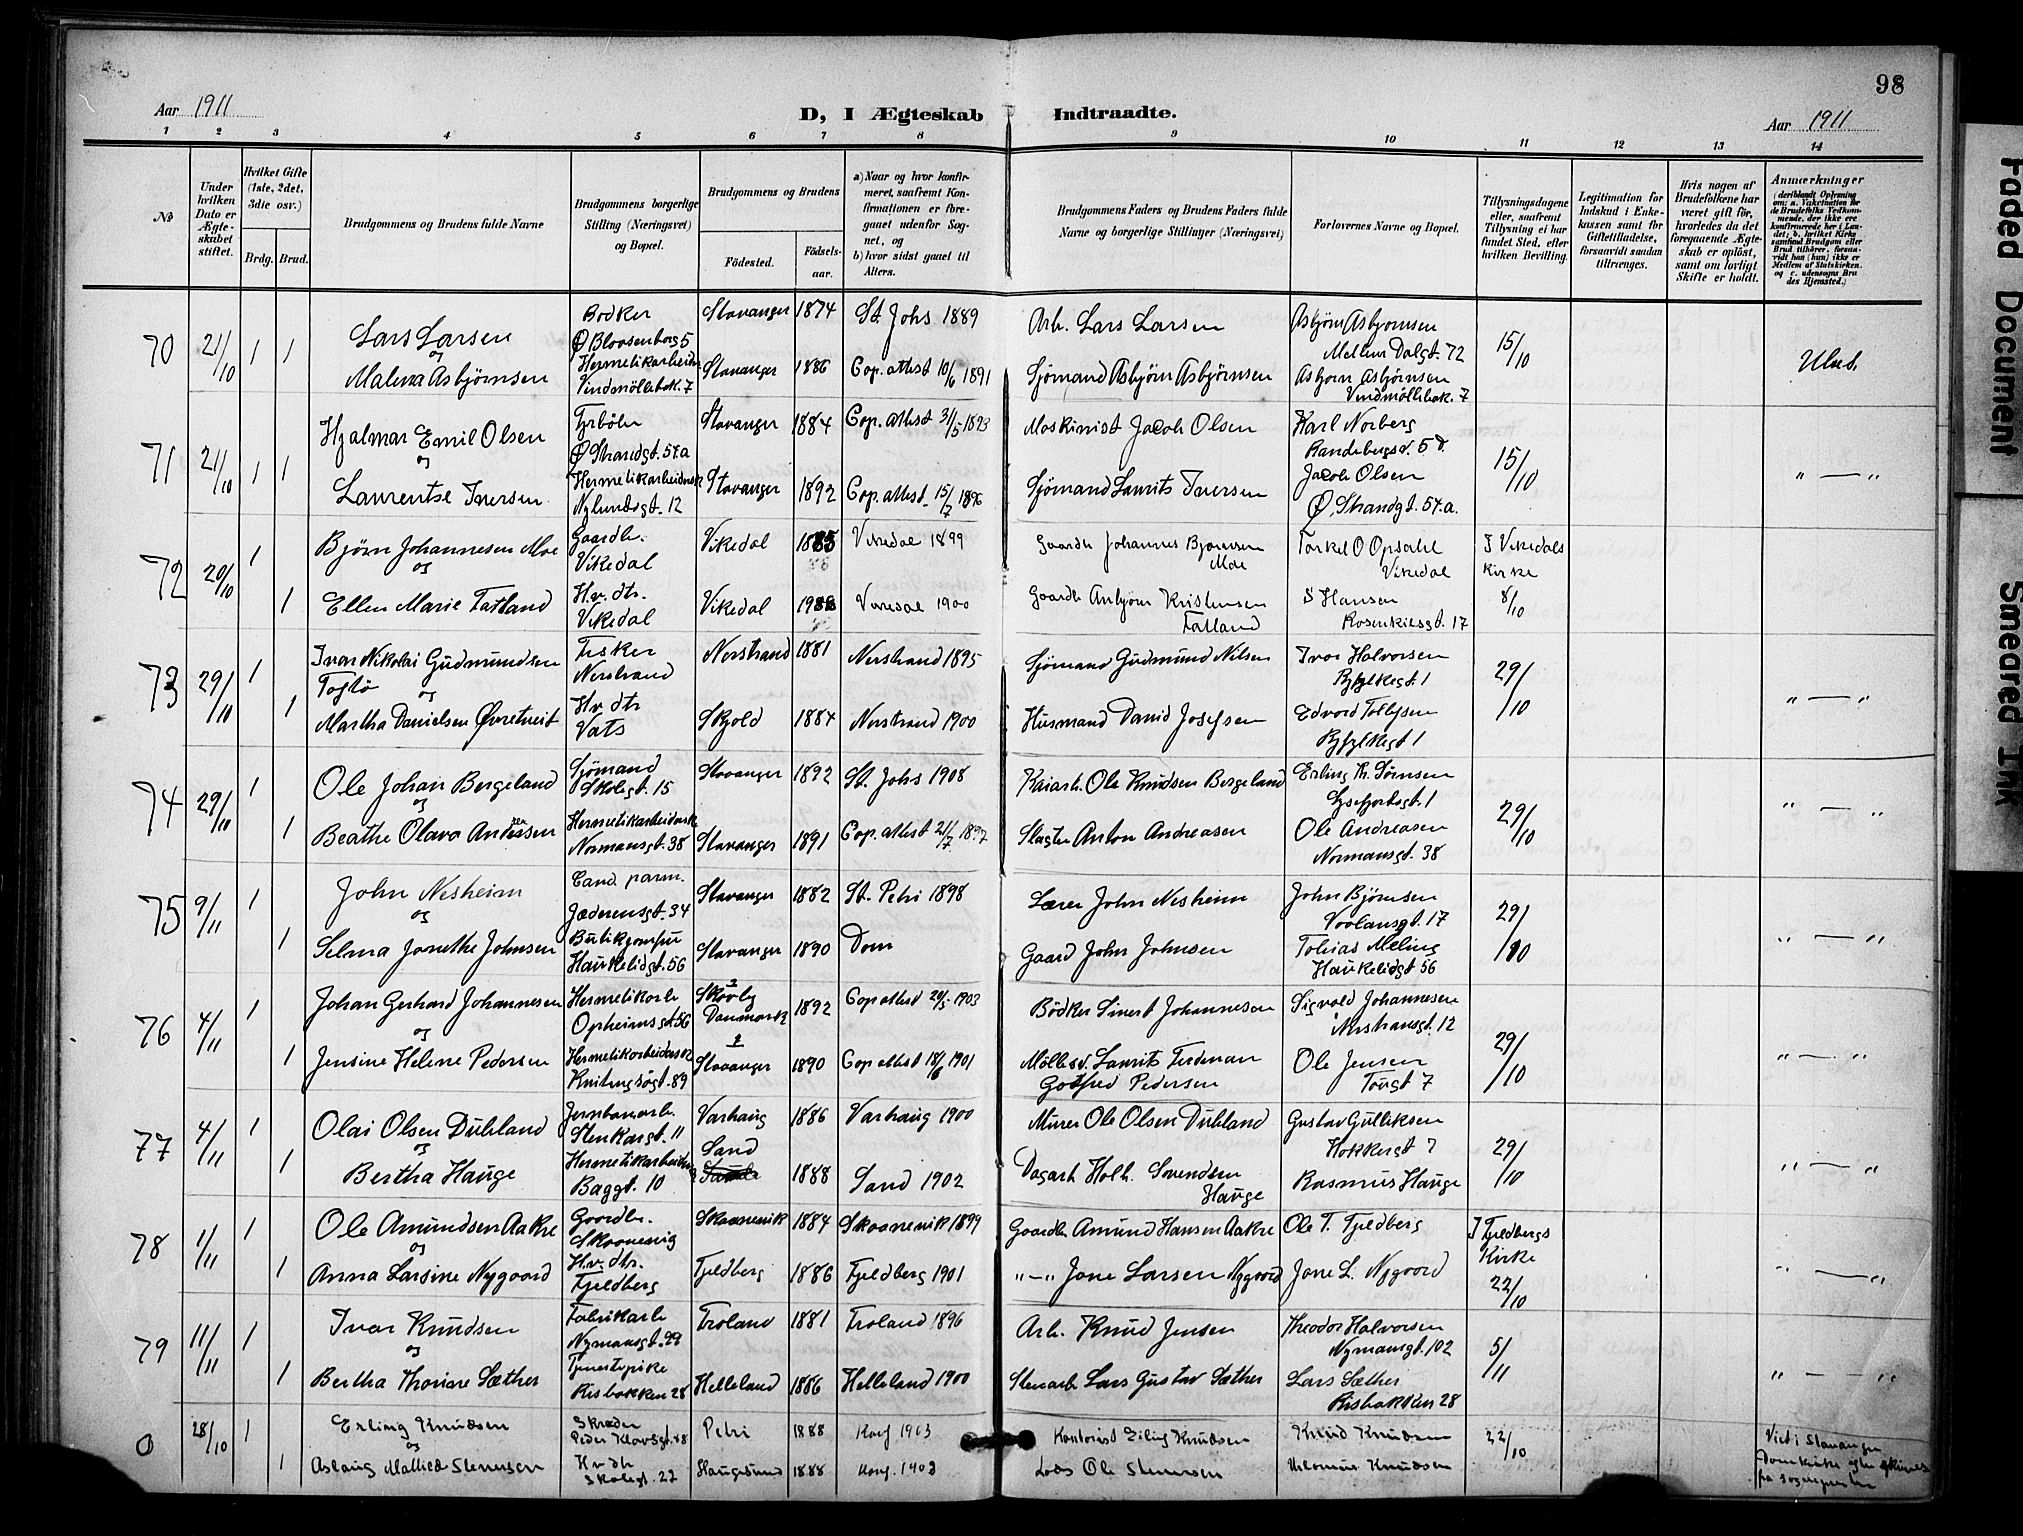 98
Aar 1911
D, I Ægteskab Indtraadte.
Aar 1911
1 2 3 4 5 6 7 8 9 10 11 12 13 14
No
Under hvilken Dato er Ægteskabet stiftet.
Hvilket Gifte (1ste, 2det, 3die osv.)
Brdg. Brud.
Brudgommens og Brudens fulde Navne
Brudgommens borgerlige Stilling (Næringsvei) og Bopæl.
Brudgommens og Brudens
Fødested.
Fødselsaar.
a) Naar og hvor konfirmeret, saafremt Konfirmationen er foregaaet udenfor Sognet, og
b) hvor sidst gaaet til Alters.
Brudgommens Faders og Brudens Faders fulde Navne og borgerlige Stillinger (Næringsvei)
Forlovernes Navne og Bopæl.
Tillysningsdagene eller, saafremt Tillysning ei har fundet Sted, efter hvilken Bevilling.
Legitimation for Indskud i Enkekassen samt for Giftetilladelse, forsaavidt saadan tiltrænges.
Hvis nogen af Brudefolkene har været gift før, hvorledes da det foregaaende Ægteskab er opløst, samt om lovligt Skifte er holdt.
Anmærkninger
70 21/10 1 1
Lars Larsen
og
Malena Asbjørnsen
Bødker
Ø Blaasenborg 5
Hermetikarbeider
Vindmøllebak. 7
Stavanger 1874 St. Johs 1889
Stavanger 1886 Cop. attest 10/6 1891
Arb. Lars Larsen
Sjømand Asbjørn Asbjørnsen
Asbjørn Asbjørnsen
Mellem Dalgt. 72
Asbjørn Asbjørnsen
Vindmøllebak. 7
15/10
71 21/10 1 1
Hjalmar Emil Olsen
og
Laurentse Iversen
Fyrbøter
Ø Strandgt. 57a
Hermetikarbeidersk
Nylundsgt. 12
Stavanger 1884 Cop. attest 31/5 1893
Stavanger 1892 Cop. attest. 15/7 1896
Maskinist Jacob Olsen
Sjømand Laurits Iversen
Karl Norberg
Randebergsv. 5 d.
Jacob Olsen
Ø. Strandgt. 57.a.
15/10
" — "
72 20/10 1 1
Bjørn Johannesen Moe
og
Ellen Marie Fatland
Gaardbr.
Vikedal
H.v. dtr.
Vikedal
Vikedal 1885 Vikedal 1899
Vikedal Vikedal 1900
Gaardb Johannes Bjørnsen
Moe
Gaardb Anbjørn Kristensen
Fatland
Torkel O Opsahl
Vikedal
S Hansen
Rosenkilsgt. 17
I Vikedals
Kirke
8/10
73 29/10 1 1
Ivar Nikolai Gudmundsen
og
Martha Danielsen Øvretveit
Fisker
Nerstrand
Hv. dtr
Vats
Nerstrand 1881 Nerstrand 1895
Skjold 1884 Nerstrand 1900
Sjømand Gudmund Nilsen
Husmand Daniel Josefsen
Ivar Halvorsen
Ryfylkegt. 1
Edvard Tollefsen
Ryfylkegt 1
29/10
" — "
74 29/10 1 1
Ole Johan Bergeland
og
Beathe Olava Andersen
Sjømand
Skolegt. 15
Hermetikarbeidersk
Normansgt. 38
Stavanger 1892 St. Johs 1908
Stavanger 1891 Cop. attest 21/7 1897
Kaiarb. Ole Knudsen Bergeland
Slagter Anton Andreasen
Erling Th. Sørnsen
Lysefjordsgt. 1
Ole Andreasen
Normansgt. 38
29/10
" — "
75 9/11 1 1
John Nesheim
og
Selma Janethe Johnsen
Cand. parm.
Jæderensgt. 34
Butikjomfru
Haukelidgt. 56
Stavanger 1882 St. Petri 1898
Stavanger 1890 Dom
Lærer John Nesheim
Gaard John Johnsen
John Bjørnsen
Vorlansgt. 17
Tobias Meling
Haukelidgt 56
29/10
" — "
76 4/11 1 1
Johan Gerhard Johannesen
og
Jensine Helene Pedersen
Hermetikarb
Opheimsgt. 56
Hermetikarbeidersk
Knitingsøgt. 89
Skovby
Danmark 1892 Cop attest 20/5 1903
Stavanger 1890 Cop attest 18/6 1901
Bødker Sivert Johannesen
Møllesv. Laurits Ferdinan
Gotfred Pedersen
Sigvald Johannesen
Nerstransgt. 12
Ole Jensen
Tougt 7
29/10
" — "
77 4/11 1 1
Olai Olsen Dubland
og
Bertha Hauge
Jernbanearb.
Stenkargt. 11
Hermetikarbeiderske
Baggt. 10
Varhaug 1886 Varhaug 1900
Sand 1888 Sand 1902
Murer Ole Olsen Dubland
Dagarb Holb. Svendsen
Hauge
Gustav Gulliksen
Hokkergt 7
Rasmus Hauge
29/10
" — "
78 1/11 1 1
Ole Amundsen Aakre
og
Anna Larsine Nygaard
Gaardbr.
Skaanevig
H.v. dtr.
Fjeldberg
Skaanevik 1884 Skaanevik 1899
Fjeldberg 1886 Fjeldberg 1901
Gaardb Amund Hansen Aakre
" — " Jone Larsen Nygaard
Ole T. Fjeldberg
Jone L. Nygaard
I Fjeldbergs
Kirke
22/10
" — "
79 11/11 1 1
Ivar Knudsen
og
Bertha Thorine Sæther
Fabrikarb
Nymansgt. 99
Tjenestepike
Risbakken 28
Froland 1881 Froland 1896
Helleland 1886 Helleland 1900
Arb. Knud Jensen
Stenarb Lars Gustav Sæther
Theodor Halvorsen
Nymansgt. 102
Lars Sæther
Risbakken 28
5/11
" — "
0 28/10 1 1
Erling Knudsen
og
Aslaug Mathied Stenersen
Skræder
Peder Klowsgt. 48
Hv dtr
Skolegt. 27
Petri 1888 Konf 1903
Haugesund 1888 Konf. 1903
Kontorist Erling Knudsen
Lods Ole Stenersen
Knud Knudsen
22/10
Viet i Stavanger
Domkirke
fra sognepresten
Faded Document
Smeared Ink